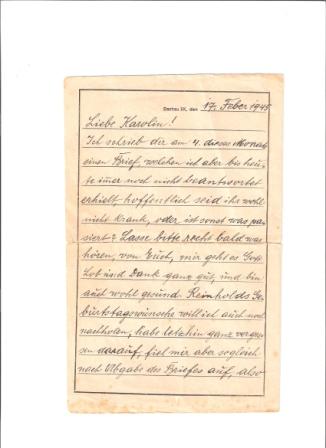 Dachau 3K, den 17. Feber 1945
Liebe Karolin!
Ich schrieb dir am 4. dieses Monats
einen Brief, welchen ich aber bis heu-
te immer noch nicht beantwortet
erhielt, hoffentlich seid ihr wohl
nicht krank, oder ist sonst was pas-
siert? Lasse bitte recht bald was
hören, von Euch, mir geht es Gott
Lob und Dank ganz gut, und bin
auch wohl gesund. Reinholds Ge-
burtstagswünsche will ich auch noch
nachholen, hab letzhin ganz verges-
sen darauf, fiel mir aber sogleich
nach Abgabe des Briefes auf, also